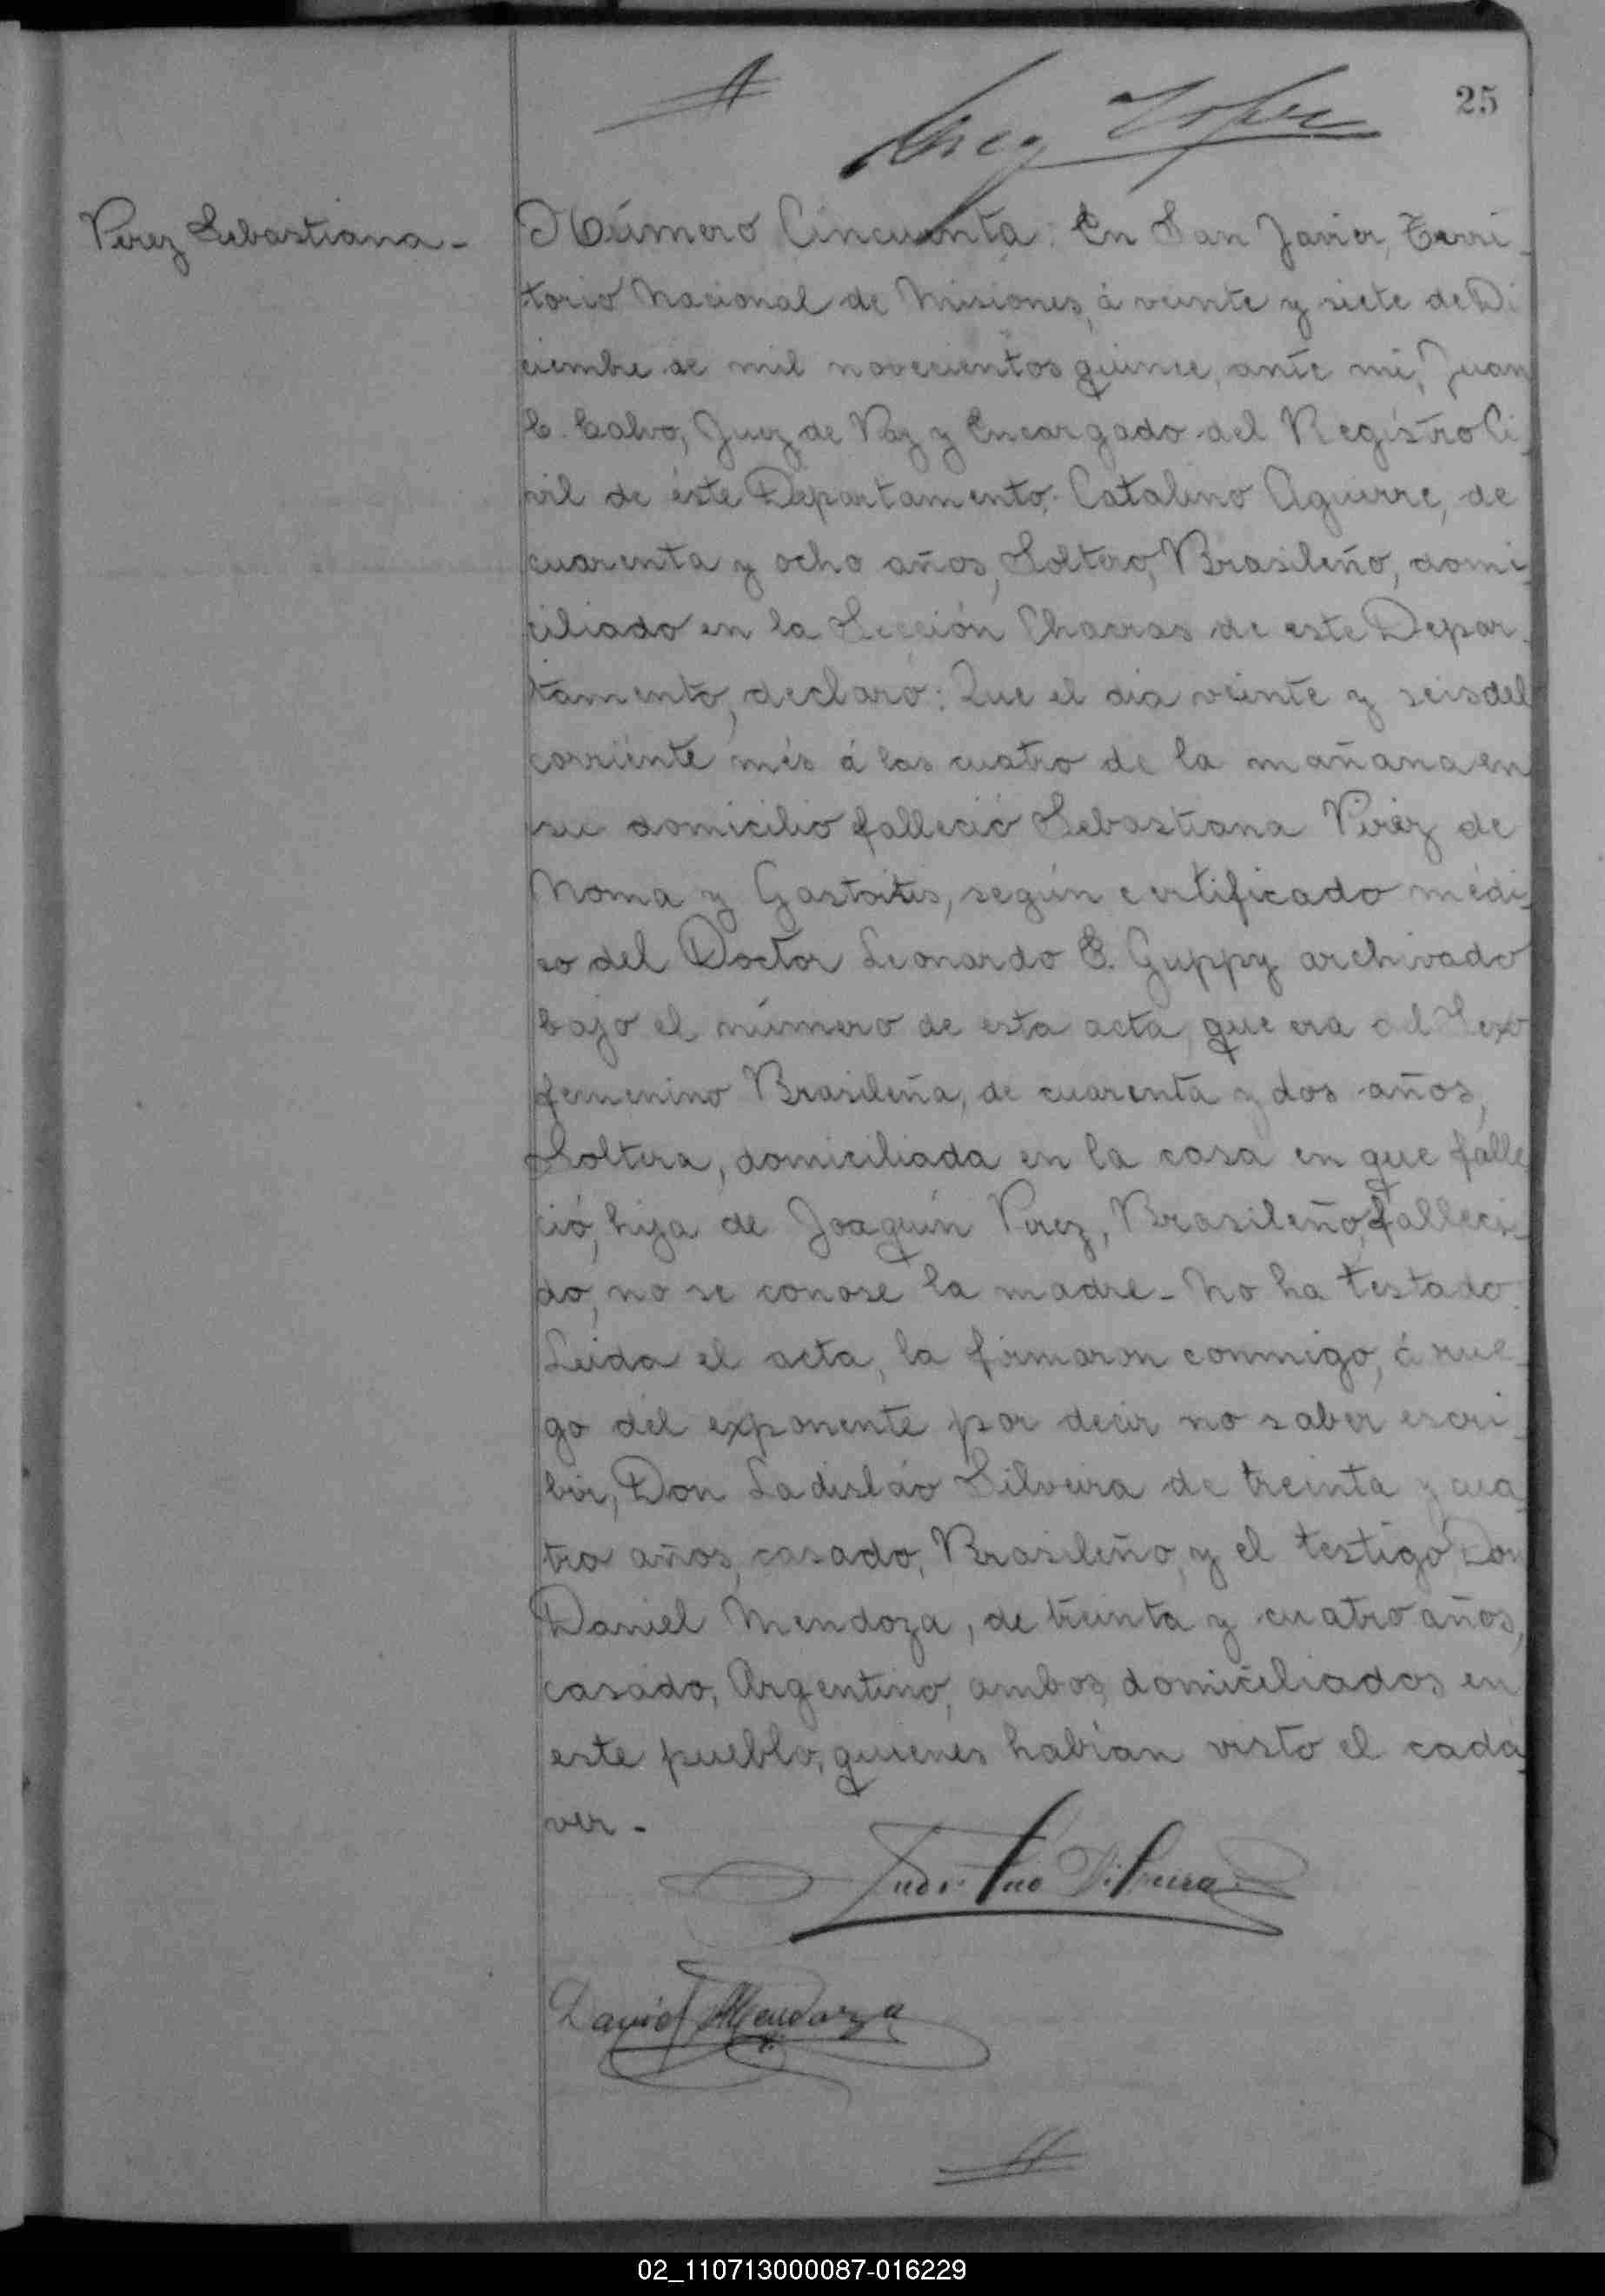 25
Perez Sebastiana-
Número Cincuenta: En San Javier, Terri-
torio Nacional de Misiones, á veinte y siete de Di
ciembre de mil novecientos quince, ante mi, Juan
C. Calvo, Juez de Paz y Encargado del Registro Ci-
vil de éste Departamento; Catalino Aguirre, de
cuarenta y ocho años, Soltero, Brasileño, domi-
ciliado en la Sección Chacras de este Depar-
tamento, declaró: Que el dia veinte y seis del
corriente més á las cuatro de la mañana en
su domicilio falleció Sebastiana Pérez de
y según certificado médi-
co del Doctor Leonardo E. Guppy archivado
bajo el número de esta acta, que era del Sexo
femenino Brasileña, de cuarenta y dos años,
Soltera, domiciliada en la casa en que falle
ció, hija de Joaquín Perez, Brasileño, falleci-
do, no se conose la madre- No ha testado.
Leida el acta, la firmaron conmigo, á rue-
go del exponente por decir no saber escri-
bir, Don Ladisláo Silveira de treinta y cua-
tro años, casado, Brasileño, y el testigo Don
Daniel Mendoza, de treinta y cuatro años,
casado, Argentino, ambos domiciliados en
este pueblo, quienes habían visto el cadá-
ver-
Daniel Mendoza
02_110713000087-016229